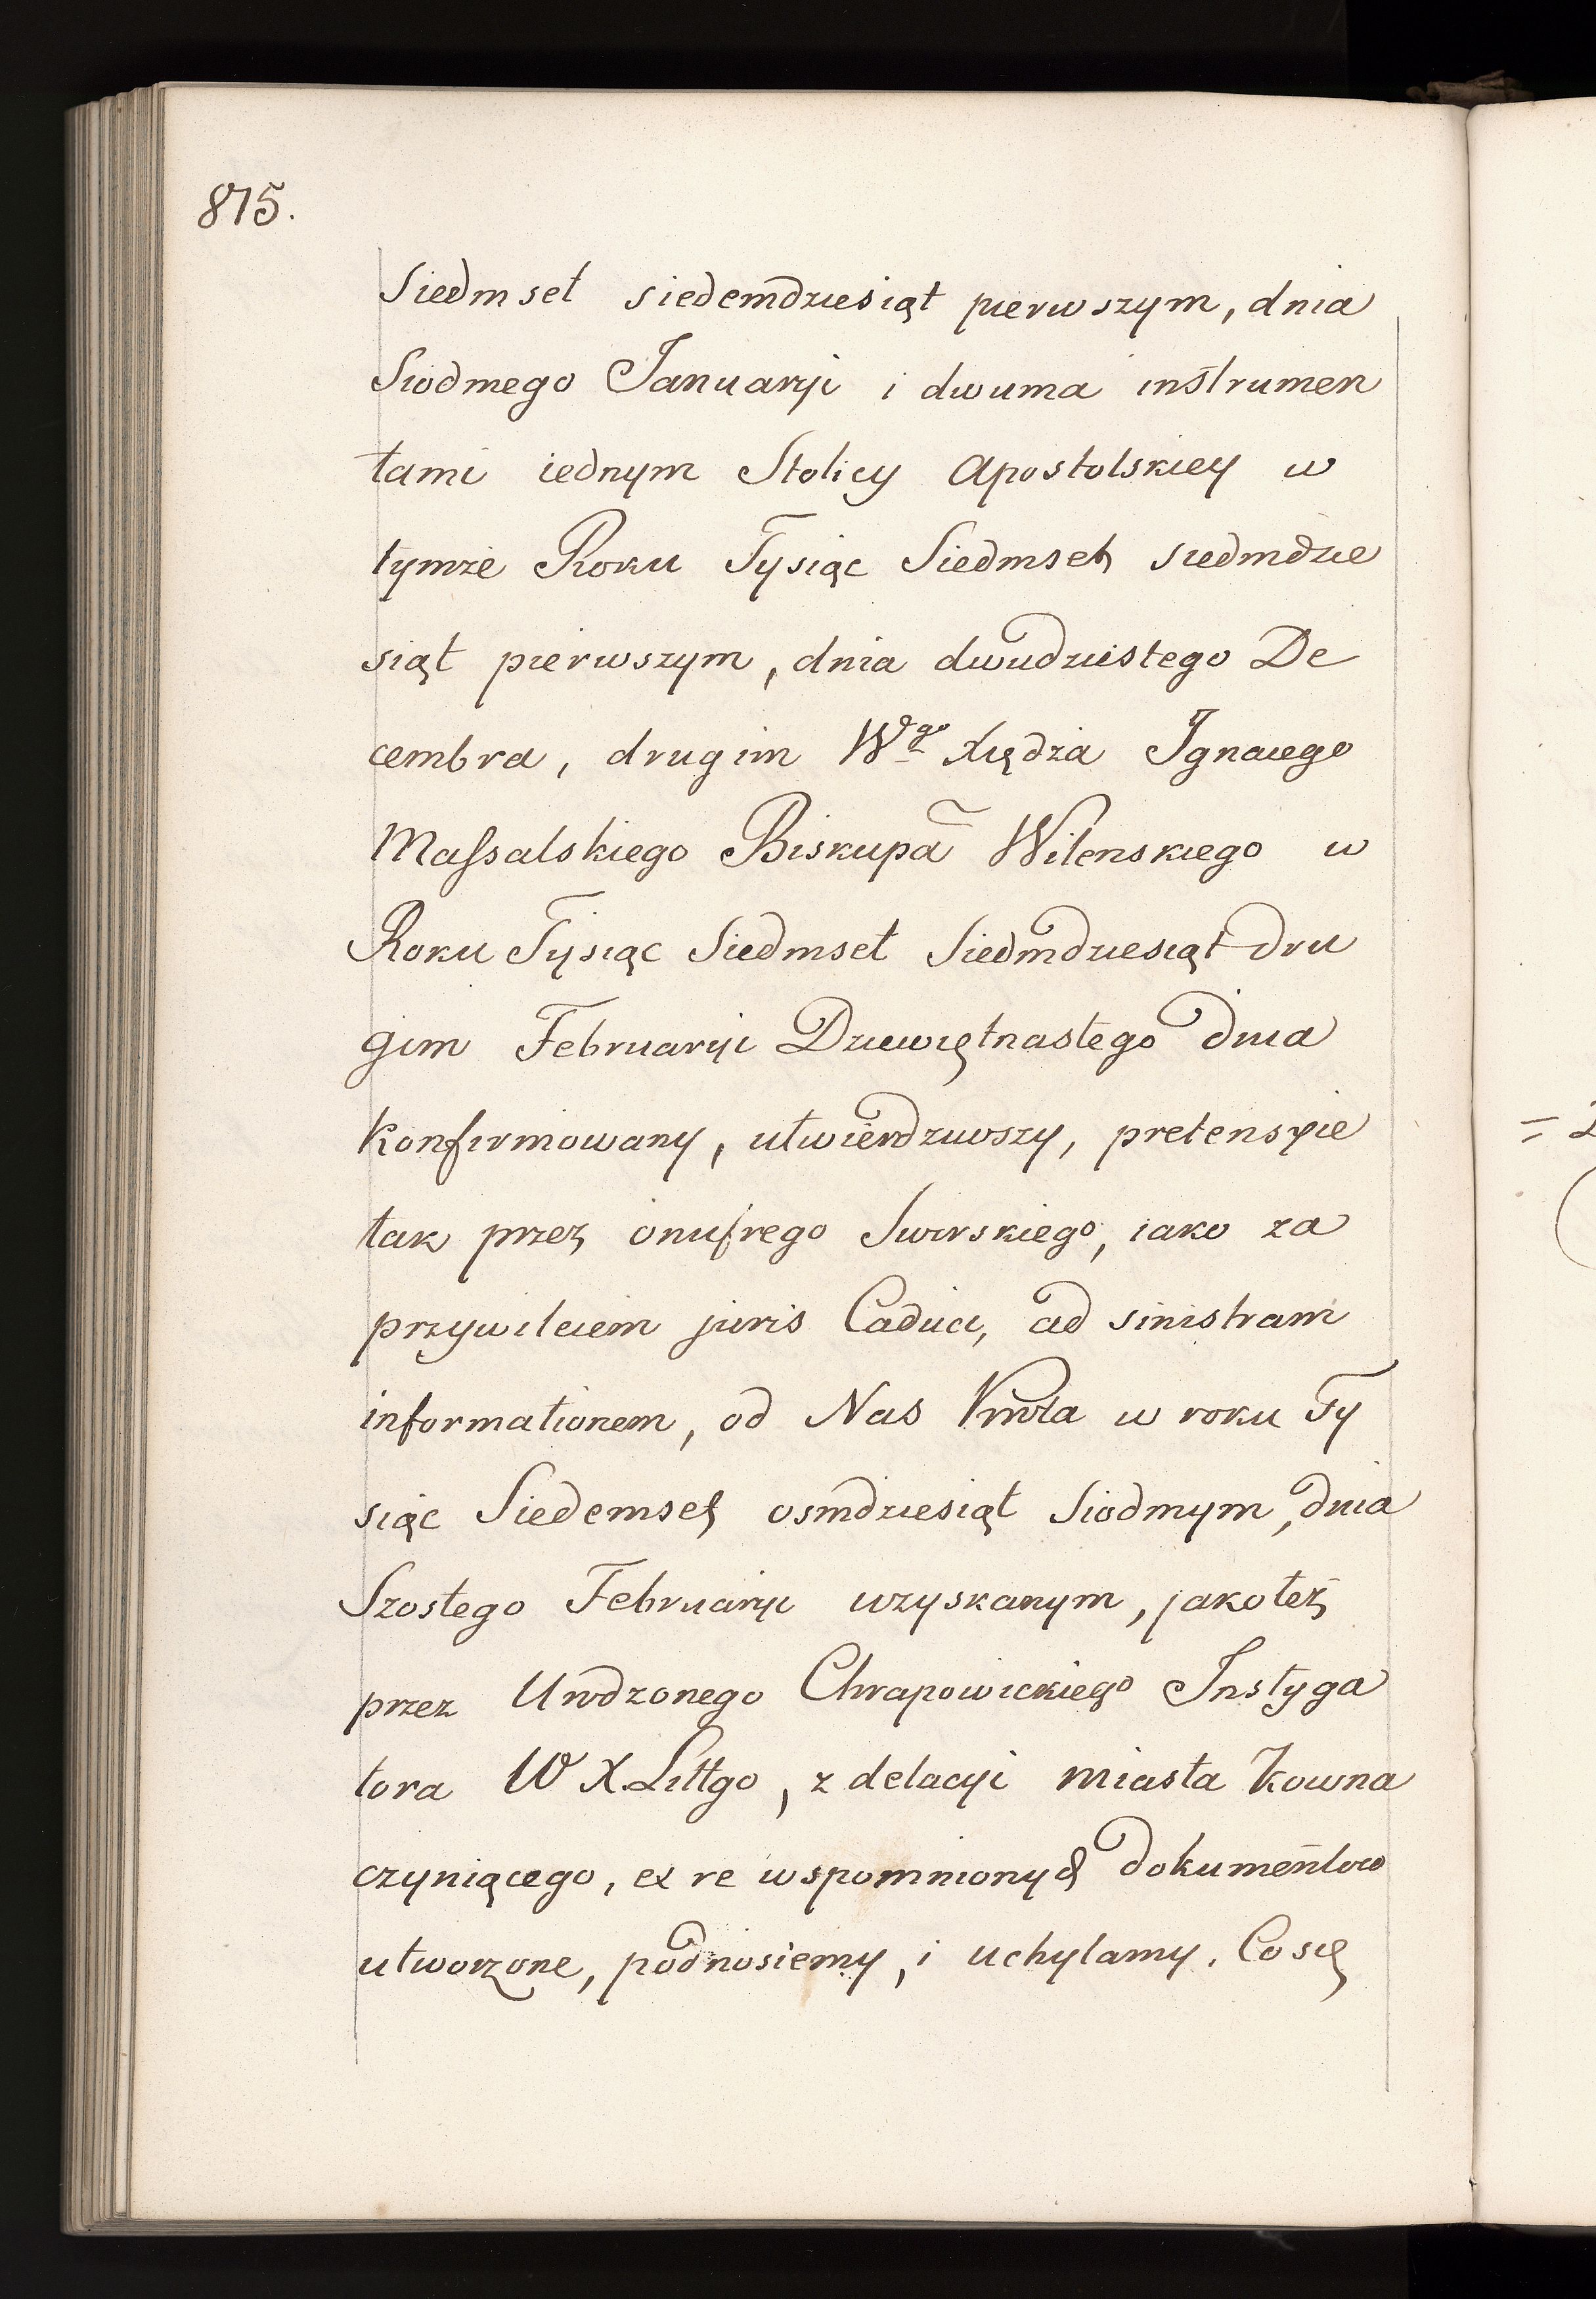 875.
Siedmset siedemdziesiąt pierwszym, dnia
Siodmego Januaryi i dwuma instrumen
tami iednym Stolicy Apostolskiey w
tymże Roku Tysiąc Siedmset siedmdzie
siąt pierwszym, dnia dwudziestego De
cembra, drugim Wgo Xiędza Ignacego
Massalskiego Biskupa Wilenskiego w
Roku Tysiąc Siedmset Siedmdziesiąt dru
gim Februaryi Dziewiętnastego dnia
konfirmowany, utwierdziwszy, pretensyie
tak przez onufrego Swirskiego, iako za
przywileiem juris Caduci, ad sinistram
informationem, od Nas Króla w roku Ty
siąc Siedemset osmdziesiąt Siodmym, dnia
Szostego Februaryi uzyskanym, jakoteż
przez Urodzonego Chrapowickiego Instyga
tora W X Littgo, z delacyi miasta Kowna
czyniącego, ex re wspomnionych dokumentow
utworzone, podnosiemy, i uchylamy. Co się